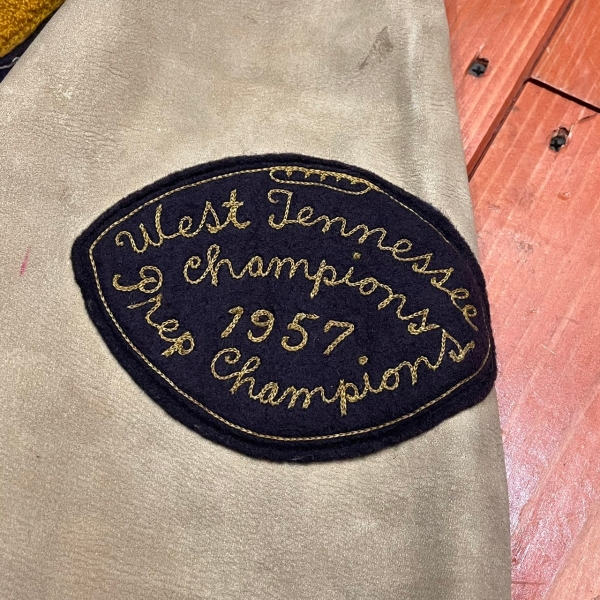 West Tennessee
Champions
1957
Prep Champions